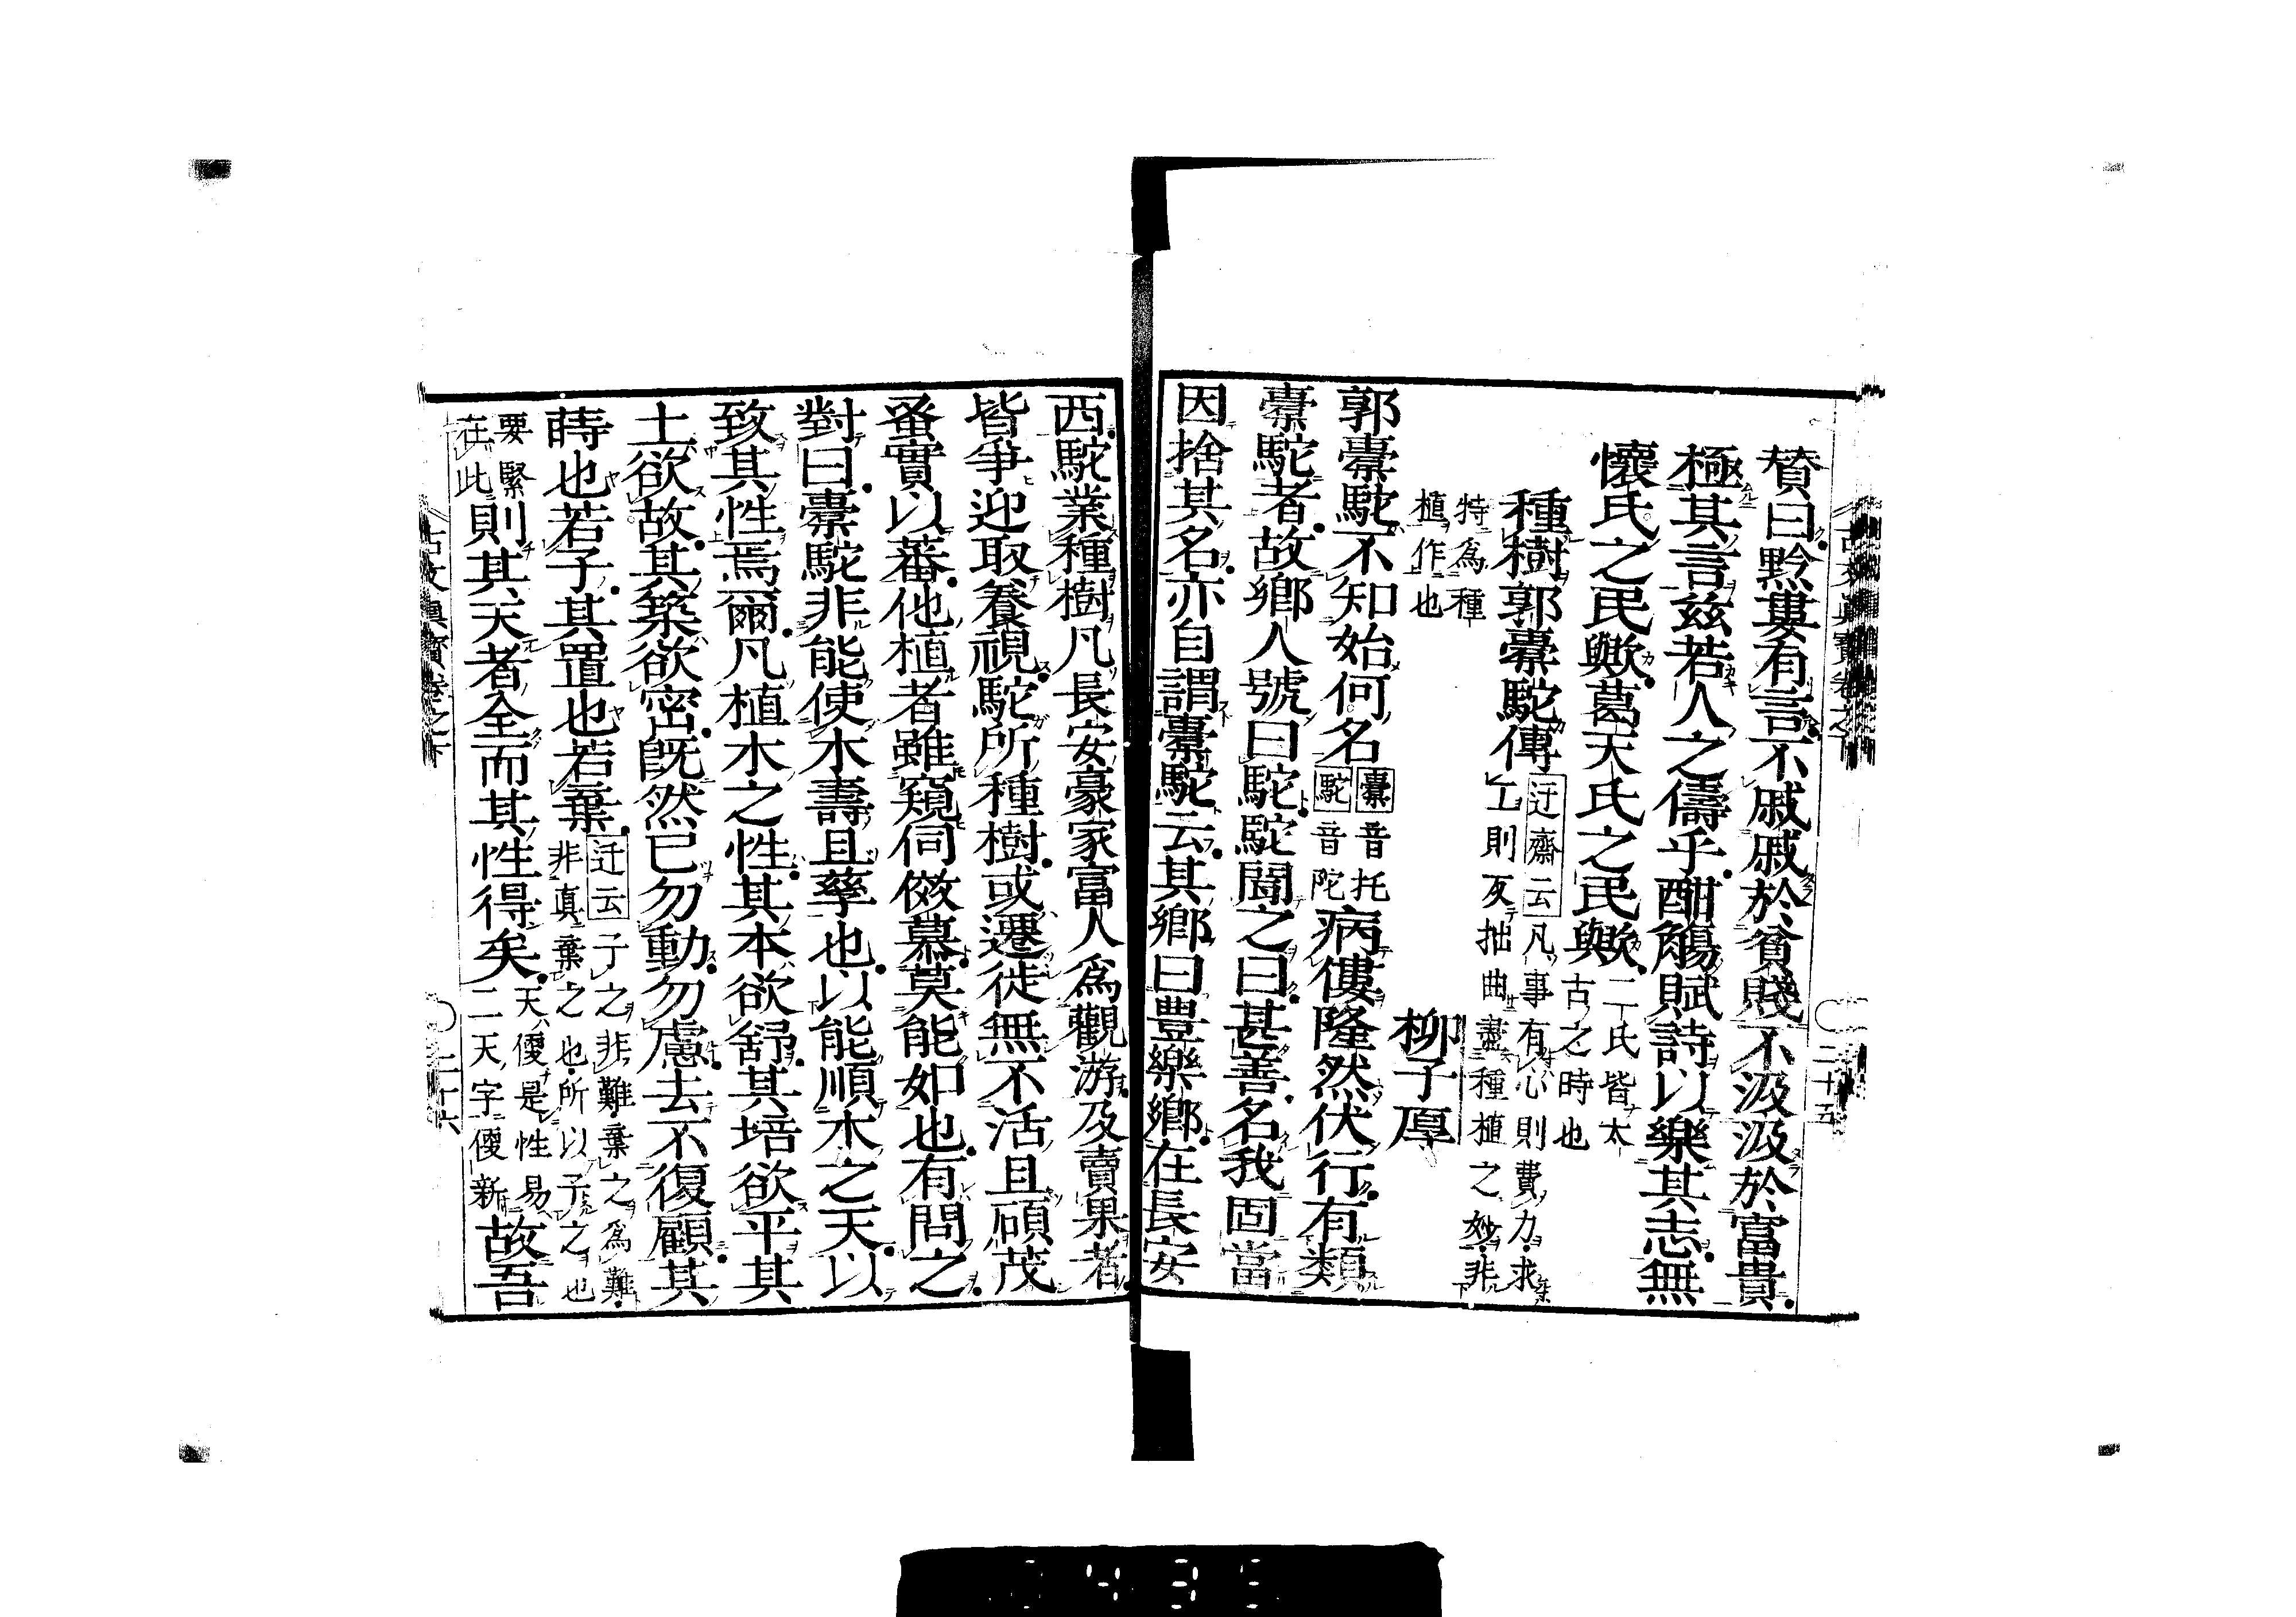 贊曰黔婁有言不戚戚於貧賤不汲汲於富貴
極其言茲若人之儔乎酣觴賦詩以樂其志無
懷氏之民歟葛天氏之民歟二氏皆太
古之時也
種樹郭橐駝傳迂齋云凡事有心則費力求
工則反拙曲盡種植之妙非
特爲種
植作也
柳子厚
郭橐駝不知始何名橐音托
駝音陀病僂隆然伏行有類
橐駝者故鄉人號曰駝駝聞之曰甚善名我固當
因捨其名亦自謂橐駝云其鄉曰豐樂鄉在長安
古文眞寶卷之下
二十五
西駝業種樹凡長安豪家富人爲觀游及賣果者
皆爭迎取養視駝所種樹或遷徙無不活且碩茂
蚤實以蕃他植者雖窺伺傚慕莫能如也有問之
對曰橐駝非能使木壽且孳也以能順木之天以
致其性焉爾凡植木之性其本欲舒其培欲平其
土欲故其築欲密既然已勿動勿慮去不復顧其
蒔也若子其置也若棄迂云子之非難棄之爲難
非真棄之也所以子之也
天便是性易
二天字便新
要緊
在此則其天者全而其性得矣故吾
古文眞寶卷之下
二十六